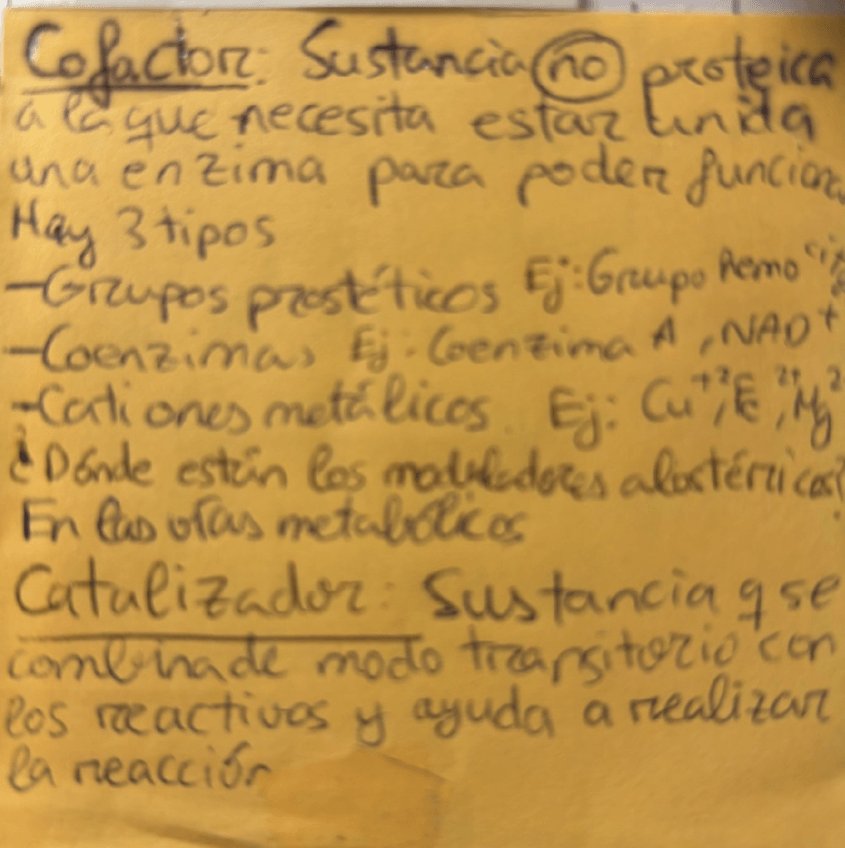 Cofactor: Sustancia no proteica
a la que necesita estar unida
una enzima para poder funciona
Hay 3 tipos
-Grupos prostéticos Ej: Grupo hemo
-Coenzimas Ej: Coenzima A, NAD+
-Cationes metálicos. Ej: Cu+2, Mg2
¿Dónde están los moduladores alostéricos?
En las vías metabólicas
Catalizador: Sustancia q se
combina de modo transitorio con
los reactivos y ayuda a realizar
la reacción